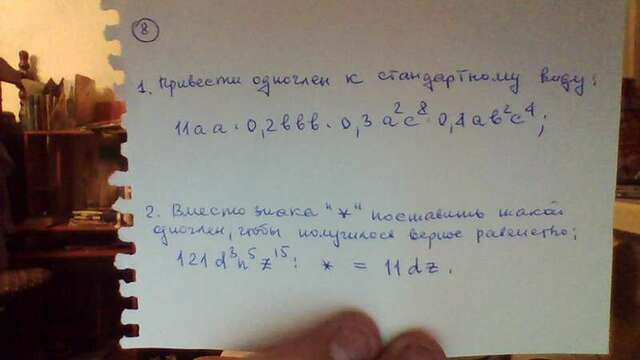 8
1. Привести одночлен к стандартному виду:
11аа · 0,2ввв · 0,3 а²с⁸ · 0,4 ав²с⁴;
2. Вместо знака "*" поставить такой
одночлен, чтобы получилось верное равенство:
121d³n⁵z¹⁵ : * = 11dz.